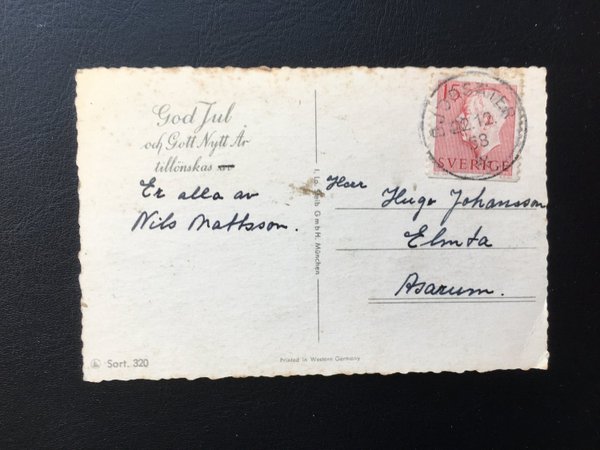 God Jul
och Gott Nytt År
tillönskas av
Er alla av
Nils Mattsson.
Sort. 320
GmbH. München
Printed in Western Germany
15
SVERIGE
22.12
58
Herr Hugo Johansson
Elmta
Asarum.